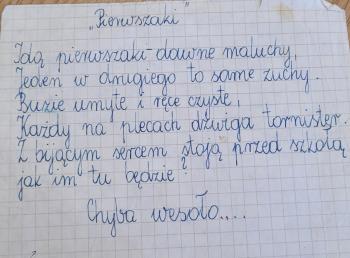 „Pierwszaki"
Idą pierwszaki-dawne maluchy,
Jeden w drugiego to same zuchy.
Buzie umyte i ręce czyste,
Każdy na plecach dźwiga tornister.
Z bijącym sercem stoją przed szkołą
jak im tu będzie?
Chyba wesoło....